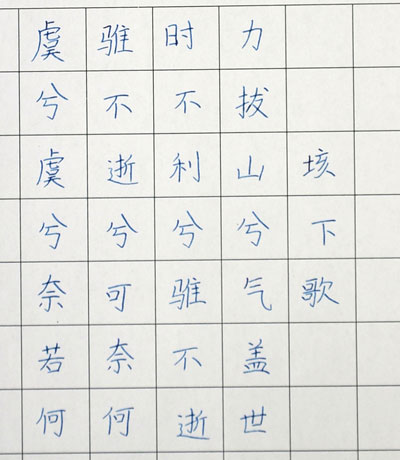 垓下歌
力拔山兮气盖世
时不利兮骓不逝
骓不逝兮可奈何
虞兮虞兮奈若何